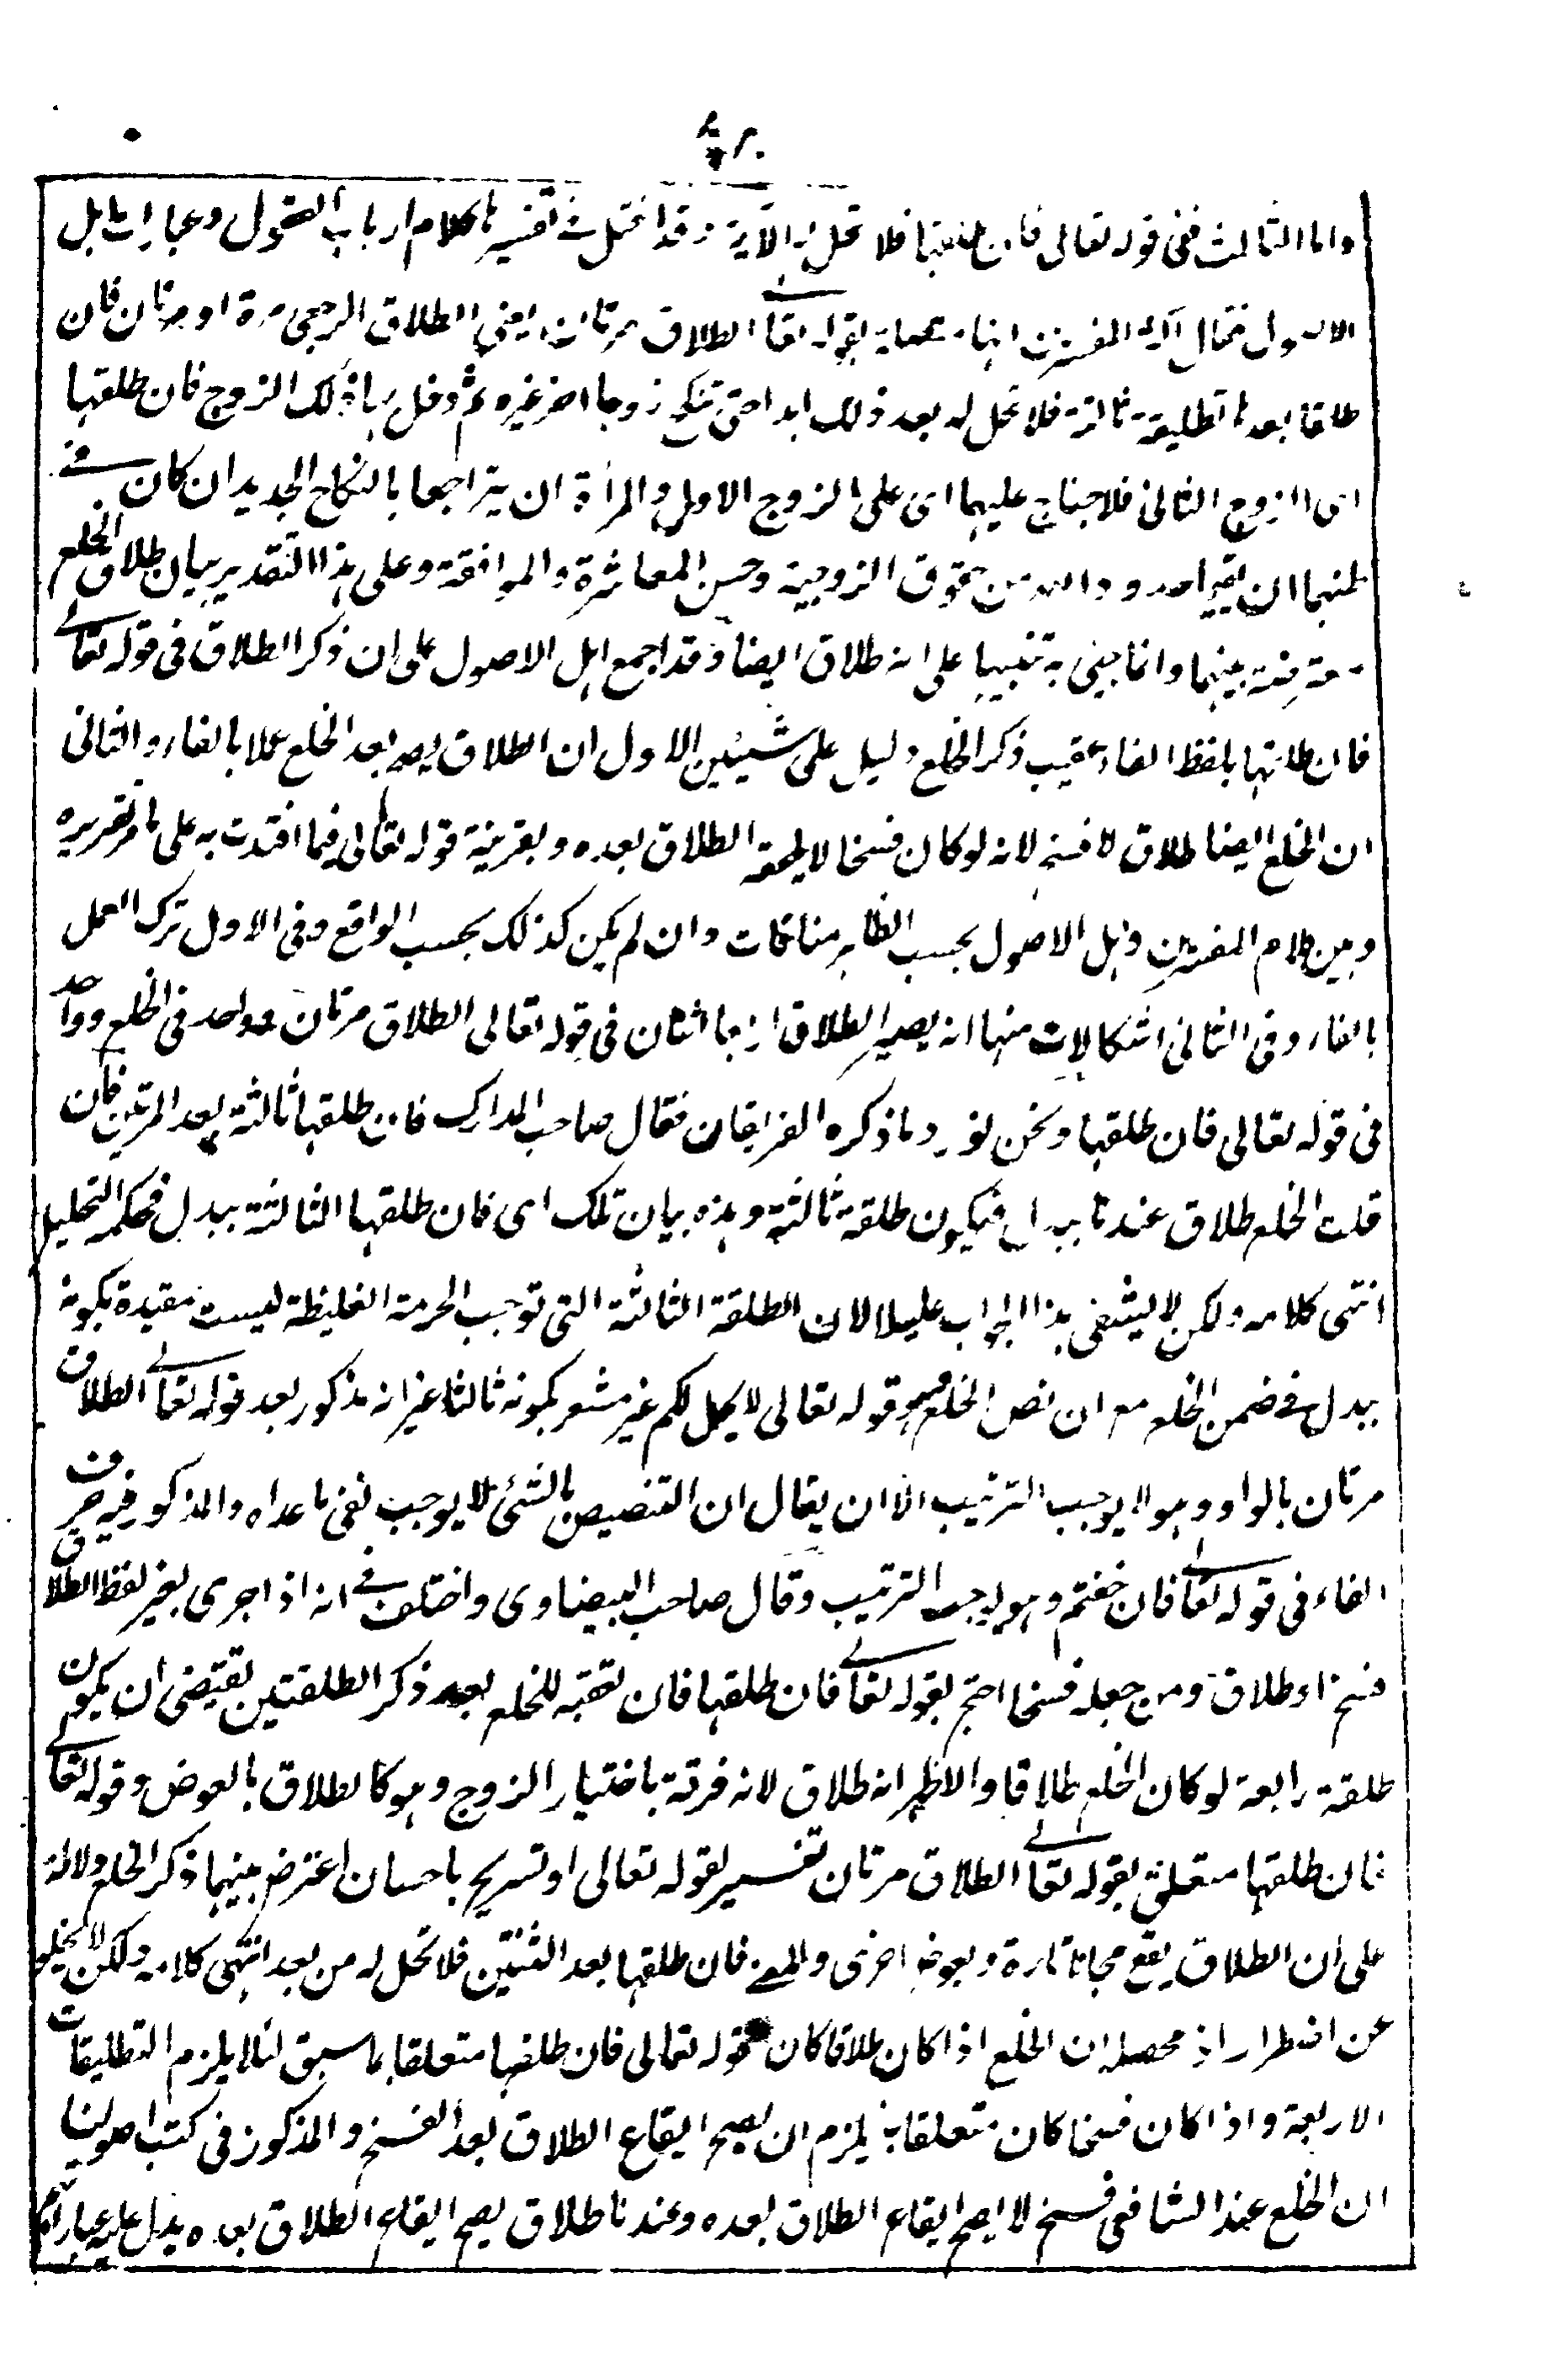 واما الثالث ففى قوله تعالى فان طلقها فلا تحل له الآية وقد اختل فى تفسيرها كلام ارباب الفحول وعبارات اهل
الاصول فقال اكثر المفسرين انها متصلة بقوله تعالى الطلاق مرتان يعنى الطلاق الرجعى مرة او مرتان فان
طلقها بعدها تطليقة ثالثة فلا تحل له بعد ذلك ابدا حتى تنكح زوجا اخر غيره ثم دخل بها ذلك الزوج فان طلقها
اى الزوج الثانى فلا جناح عليهما اى على الزوج الاول والمرأة ان يتراجعا بالنكاح الجديد ان كان فى
ظنهما ان يقيما حدود الله من حقوق الزوجية وحسن المعاشرة والموافقة وعلى هذا التقدير بيان طلاق الخلع
معترضة بينهما وانما جيئ به تنبيها على انه طلاق ايضا وقد اجمع اهل الاصول على ان ذكر الطلاق فى قوله تعالى
فان طلقها بلفظ الفاء عقيب ذكر الخلع دليل على شيئين الاول ان الطلاق يصح بعد الخلع عملا بالفاء والثانى
ان الخلع ايضا طلاق لا فسخ لانه لو كان فسخا لا يلحقه الطلاق بعده وبقرينة قوله تعالى فيما افتدت به على ما مر تقريره
وبين كلام المفسرين واهل الاصول بحسب الظاهر منافات وان لم يكن كذلك بحسب الواقع وفى الاول ترك العمل
بالفاء وفى الثانى اشكالات منها انه يصير الطلاق اربعا اثنان فى قوله تعالى الطلاق مرتان وواحد فى الخلع وواحد
فى قوله تعالى فان طلقها ونحن نورد ما ذكره الفريقان فقال صاحب المدارك فان طلقها ثالثة بعد المرتين فان
قلت الخلع طلاق عندنا ببدل فيكون طلقة ثالثة وهذه بيان تلك اى فان طلقها الثالثة ببدل فحكمه التحليل
انتهى كلامه ولكن لا يشفى هذا الجواب عليلا لان الطلقة الثالثة التى توجب الحرمة الغليظة ليست مقيدة بكونه
ببدل فى ضمن الخلع مع ان نص الخلع وهو قوله تعالى لا يحل لكم غير مشعر بكونه ثالثا غير انه مذكور بعد قوله تعالى الطلاق
مرتان بالواو وهو لا يوجب الترتيب الا ان يقال ان التنصيص بالشئ لا يوجب نفى ما عداه والمذكور فيه حرف
الفاء فى قوله تعالى فان خفتم وهو يوجب الترتيب وقال صاحب البيضاوى واختلف فى انه اذا جرى بغير لفظ الطلاق
فسخ او طلاق ومن جعله فسخا احتج بقوله تعالى فان طلقها فان تعقبه للخلع بعد ذكر الطلقتين يقتضى ان يكون
طلقة رابعة لو كان الخلع طلاقا والاظهر انه طلاق لانه فرقة باختيار الزوج وهو كالطلاق بالعوض وقوله تعالى
فان طلقها متعلق بقوله تعالى الطلاق مرتان تفسير لقوله تعالى او تسريح باحسان اعترض بينهما ذكر الخلع دلالة
على ان الطلاق يقع مجانا تارة وبعوض اخرى والمعنى فان طلقها بعد الثنتين فلا تحل له من بعد انتهى كلامه ولكن لا يخلو
عن اضطرار اذ محصله ان الخلع اذا كان طلاقا كان قوله تعالى فان طلقها متعلقا بما سبق لئلا يلزم التطليقات
الاربعة واذا كان فسخا كان متعلقا به يلزم ان يصح ايقاع الطلاق بعد الفسخ والمذكور فى كتب اصولنا
ان الخلع عند الشافعى فسخ لا يصح ايقاع الطلاق بعده وعندنا طلاق يصح ايقاع الطلاق بعده يدل عليه